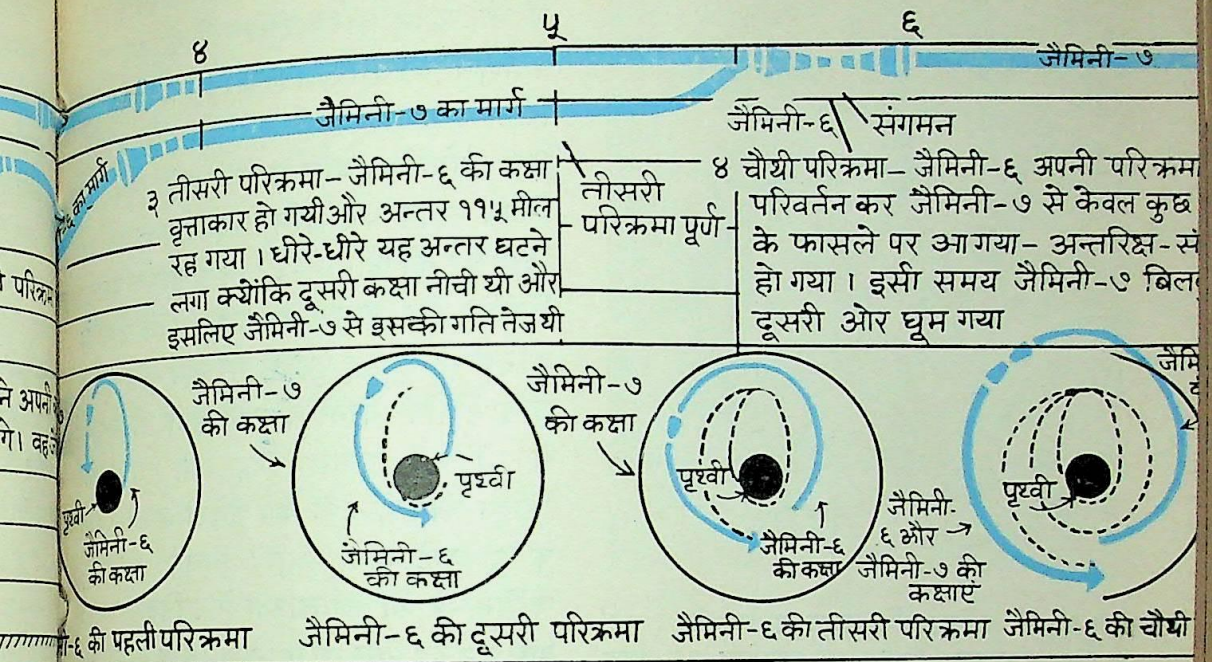 ४ ५ ६
जैमिनी-७
जैमिनी-७ का मार्ग
का मार्ग
जैमिनी-६ संगमन
३ तीसरी परिक्रमा- जैमिनी-६ की कक्षा
वृत्ताकार हो गयी और अन्तर ११५ मील
रह गया । धीरे-धीरे यह अन्तर घटने
लगा क्योंकि दूसरी कक्षा नीची थी और
इसलिए जैमिनी-७ से इसकी गति तेज थी
तीसरी
परिक्रमा पूर्ण
४ चौथी परिक्रमा- जैमिनी-६ अपनी परिक्रमा
परिवर्तन कर जैमिनी-७ से केवल कुछ
के फासले पर आ गया- अन्तरिक्ष-सं
हो गया । इसी समय जैमिनी-७ बिल
दूसरी ओर घूम गया
ने अपनी
गे। वह
पृथ्वी
जैमिनी-६
की कक्षा
जैमिनी-७
की कक्षा
पृथ्वी
जैमिनी-६
की कक्षा
जैमिनी-७
की कक्षा
पृथ्वी
जैमिनी-६
की कक्षा
जैमिनी-
६ और
जैमिनी-७ की
कक्षाएं
पृथ्वी
जैमि
-६ की पहली परिक्रमा
जैमिनी-६ की दूसरी परिक्रमा
जैमिनी-६ की तीसरी परिक्रमा
जैमिनी-६ की चौथी